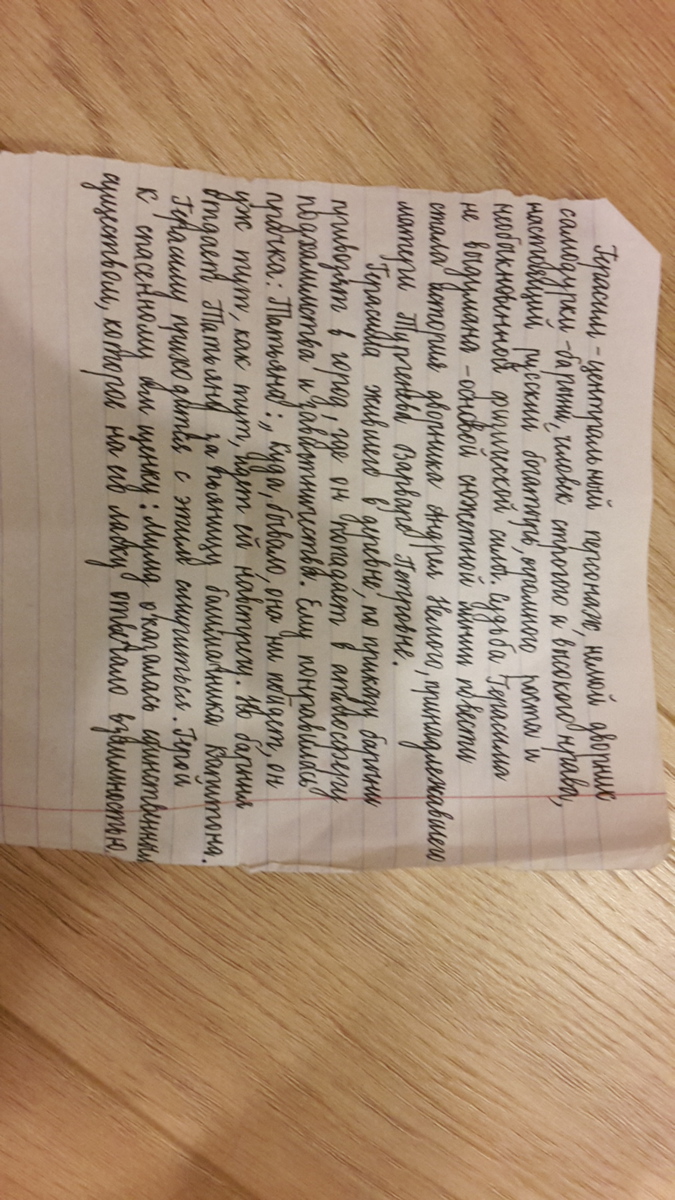 Герасим - центральный персонаж, немой дворник
самодурки-барыни, человек строгого и высокого нрава,
настоящий русский богатырь, огромного роста и
необыкновенной физической силы. Судьба Герасима
не выдумана - основой сюжетной линии повести
стала история дворника Андрея Немого, принадлежавшего
матери Тургенева Варваре Петровне.
Герасима, жившего в деревне, по приказу барыни
приводят в город, где он попадает в атмосферу
подхалимства и завистничества. Ему понравилась
прачка: Татьяна: „Куда, бывало, она ни пойдет, он
уж тут, как тут, идет ей навстречу. Но барыня
отдаёт Татьяну за пьяницу башмачника Капитона.
Герасиму приходится с этим смириться. Герой
к спасенному им щенку: Муму оказалась единственным
существом, которое на его ласку отвечало взаимностью